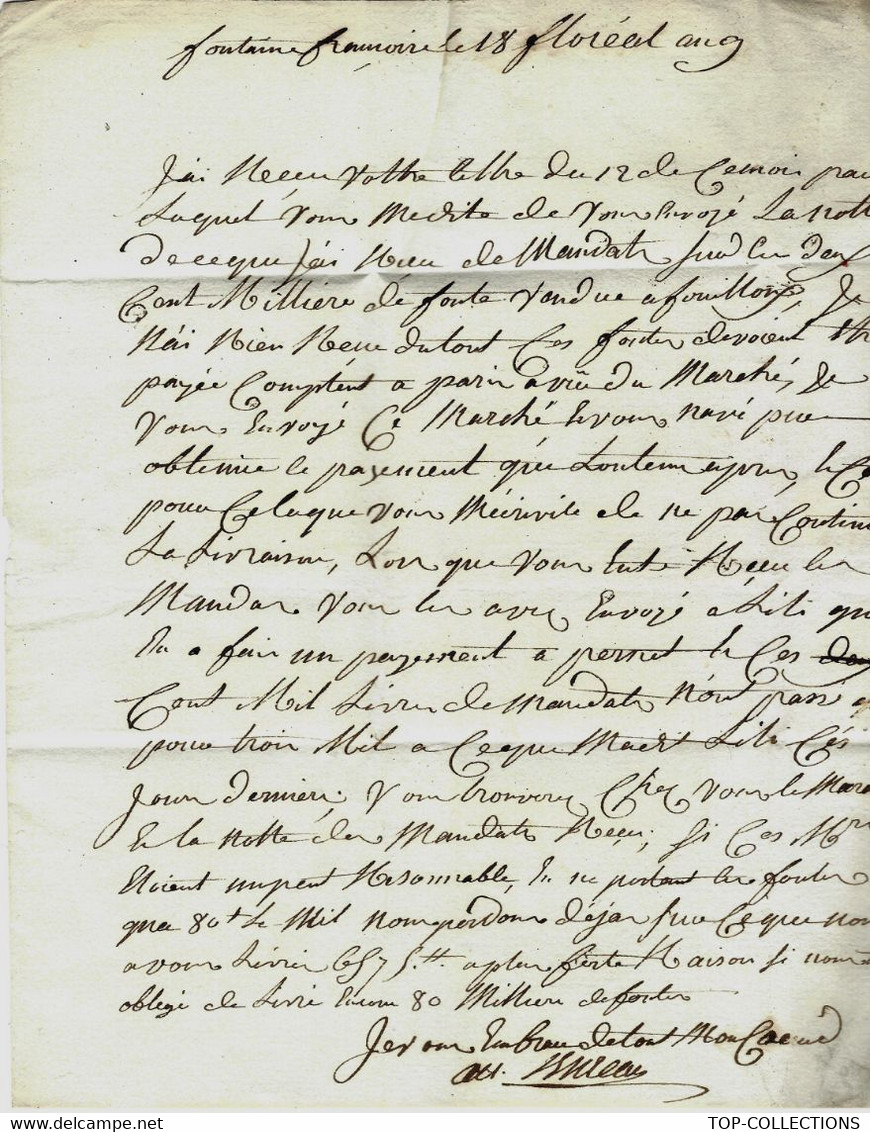 fontaine francoise le 18 floréal an 9
J'ai Reçeu Vottre Lettre du 12 de Cemois par
Laquel Vous Medite de Vous Envoyé La notte
de ceque J'ai Reçu de Mandats sur les deux
Cent Milliére de fonte Vandue a fouillon, Je
N'ai Rien Reçeu du tout Ces fontes devoient
payée Comptent a paris a vüe du Marché, Je
Vous Envoyé Ce Marché Et vous navé pue
obtenire le payement
pour Cela que vous M'écrivite de ne pas Continu
La Livraison, Lors que Vous Reçeu les
Mandas Vous les avez Envoyé a Lili qui
En a fait un payement a Ces
Cent Mil Livres de Mandats N'ont passé
pour trois Mil a Ceque Madit Lili Cés
Jours derniers; Vous trouverez Chez Vous le Mar
Et la Notte des Mandats Reçeu; Si Ces Mrs
Etoient unpeut Résonnable, En ne portant les fontes
qua 80# Le Mil nous perdons déjas sur Ceque nous
avons Livrés a plus forte Raison Si nous
obligé de Livré Encore 80 Milliers de fontes
Je vous Embrasse de tout Mon Coeur
TOP-COLLECTIONS